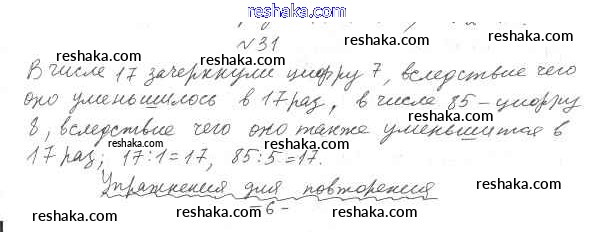 reshaka.com
№31
reshaka.com
В числе 17 зачеркнули цифру 7, вследствие чего
reshaka.com reshaka.com reshaka.com
оно уменьшилось в 17 раз, в числе 85 – цифру
8, вследствие чего оно также уменьшится в
reshaka.com
17 раз; 17:1=17, 85:5=17.
reshaka.com reshaka.com
Упражнения для повторения
reshaka.com reshaka.com
=6-
reshaka.com